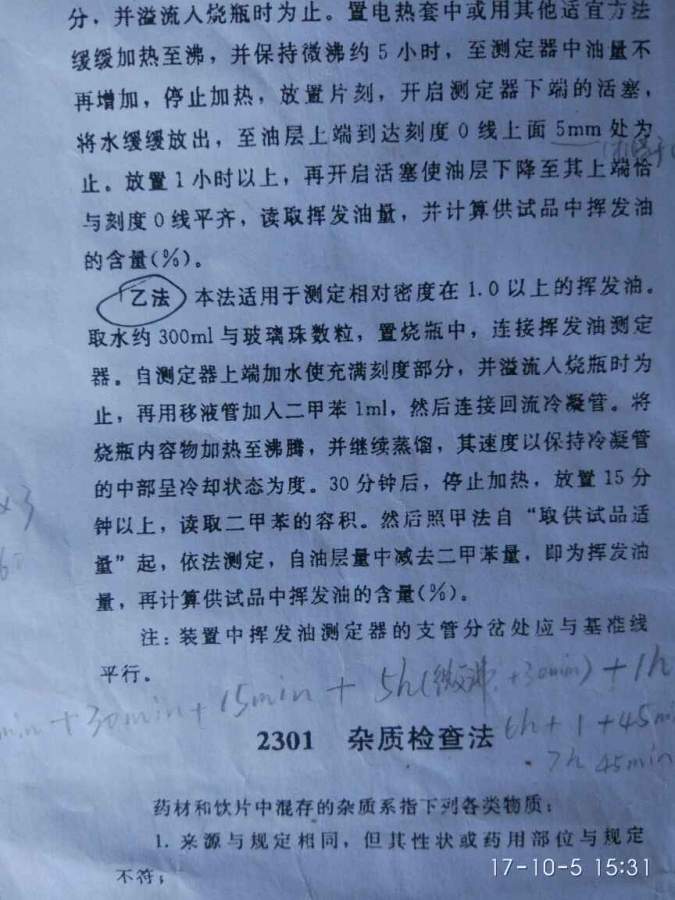 分，并溢流入烧瓶时为止。置电热套中或用其他适宜方法
缓缓加热至沸，并保持微沸约 5 小时，至测定器中油量不
再增加，停止加热，放置片刻，开启测定器下端的活塞，
将水缓缓放出，至油层上端到达刻度 0 线上面 5mm 处为
止。放置 1 小时以上，再开启活塞使油层下降至其上端恰
与刻度 0 线平齐，读取挥发油量，并计算供试品中挥发油
的含量(%)。
乙法 本法适用于测定相对密度在 1.0 以上的挥发油。
取水约 300ml 与玻璃珠数粒，置烧瓶中，连接挥发油测定
器。自测定器上端加水使充满刻度部分，并溢流入烧瓶时为
止，再用移液管加入二甲苯 1ml，然后连接回流冷凝管。将
烧瓶内容物加热至沸腾，并继续蒸馏，其速度以保持冷凝管
的中部呈冷却状态为度。30 分钟后，停止加热，放置 15 分
钟以上，读取二甲苯的容积。然后照甲法自“取供试品适
量”起，依法测定，自油层量中减去二甲苯量，即为挥发油
量，再计算供试品中挥发油的含量(%)。
注：装置中挥发油测定器的支管分岔处应与基准线
平行。
min + 30min + 15min + 5h(微沸 +30min) + 1h
6h + 1 + 45m
7h 45min
2301 杂质检查法
药材和饮片中混存的杂质系指下列各类物质：
1. 来源与规定相同，但其性状或药用部位与规定
不符；
17-10-5 15:31